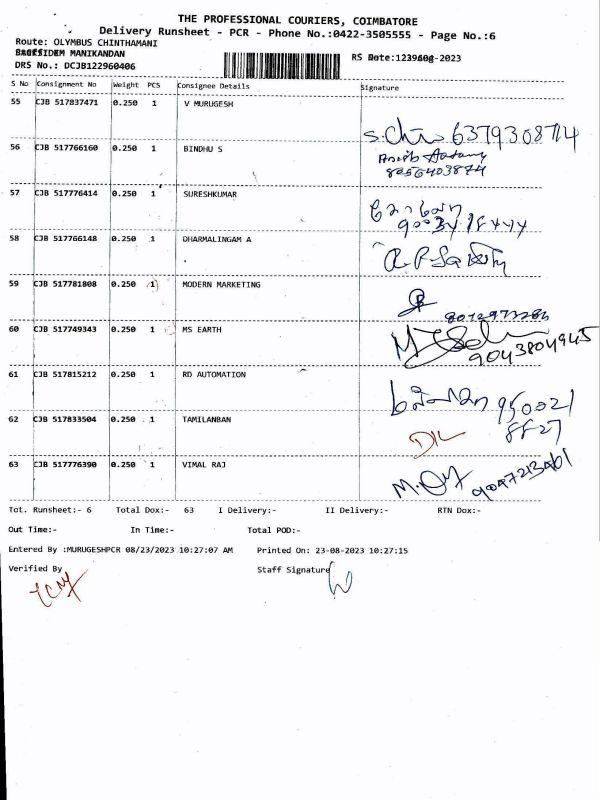 THE PROFESSIONAL COURIERS, COIMBATORE
Delivery Runsheet - PCR - Phone No.:0422-3505555 - Page No.:6
Route: OLYMBUS CHINTHAMANI
MANIKANDAN
RS Date:
-2023
DRS No.: DCJB122960406
S No Consignment No Weight PCS Consignee Details Signature
55 CJB 517837471 0.250 1 V MURUGESH
6379308714
56 CJB 517766160 0.250 1 BINDHU S
8056403874
57 CJB 517776414 0.250 1 SURESHKUMAR
58 CJB 517766148 0.250 1 DHARMALINGAM A
59 CJB 517781808 0.250 1 MODERN MARKETING
60 CJB 517749343 0.250 1 MS EARTH
9043804945
61 CJB 517815212 0.250 1 RD AUTOMATION
950021
8827
62 CJB 517833504 0.250 1 TAMILANBAN
63 CJB 517776390 0.250 1 VIMAL RAJ
Tot. Runsheet:- 6 Total Dox:- 63 I Delivery:- II Delivery:- RTN Dox:-
Out Time:- In Time:- Total POD:-
Entered By :MURUGESHPCR 08/23/2023 10:27:07 AM Printed On: 23-08-2023 10:27:15
Verified By Staff Signature